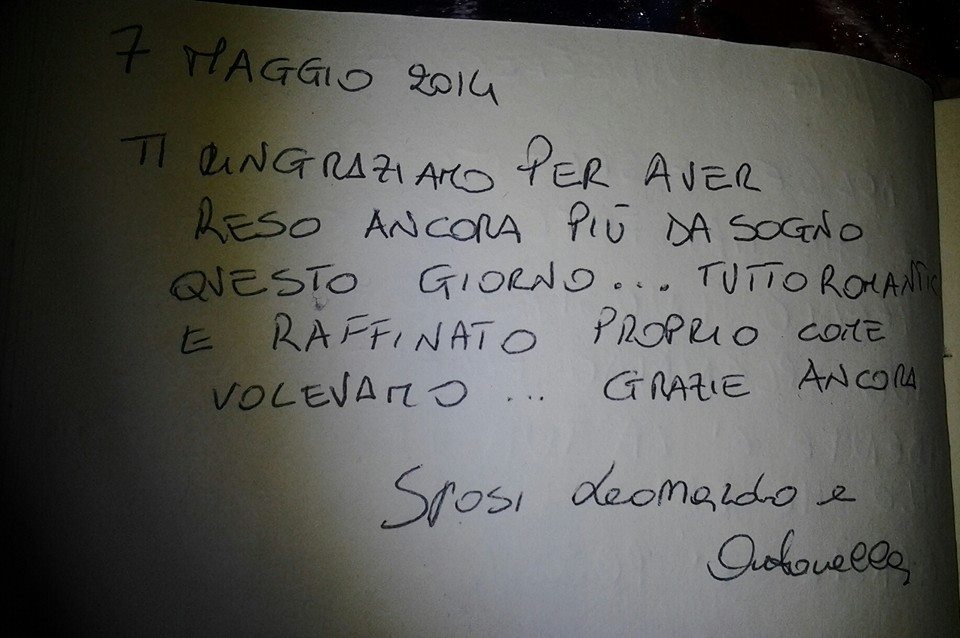 7 MAGGIO 2014
TI RINGRAZIAMO PER AVER
RESO ANCORA PIÙ DA SOGNO
QUESTO GIORNO... TUTTO ROMANTIC
E RAFFINATO PROPRIO COME
VOLEVAMO ... GRAZIE ANCORA
Sposi Leonardo e
Antonella